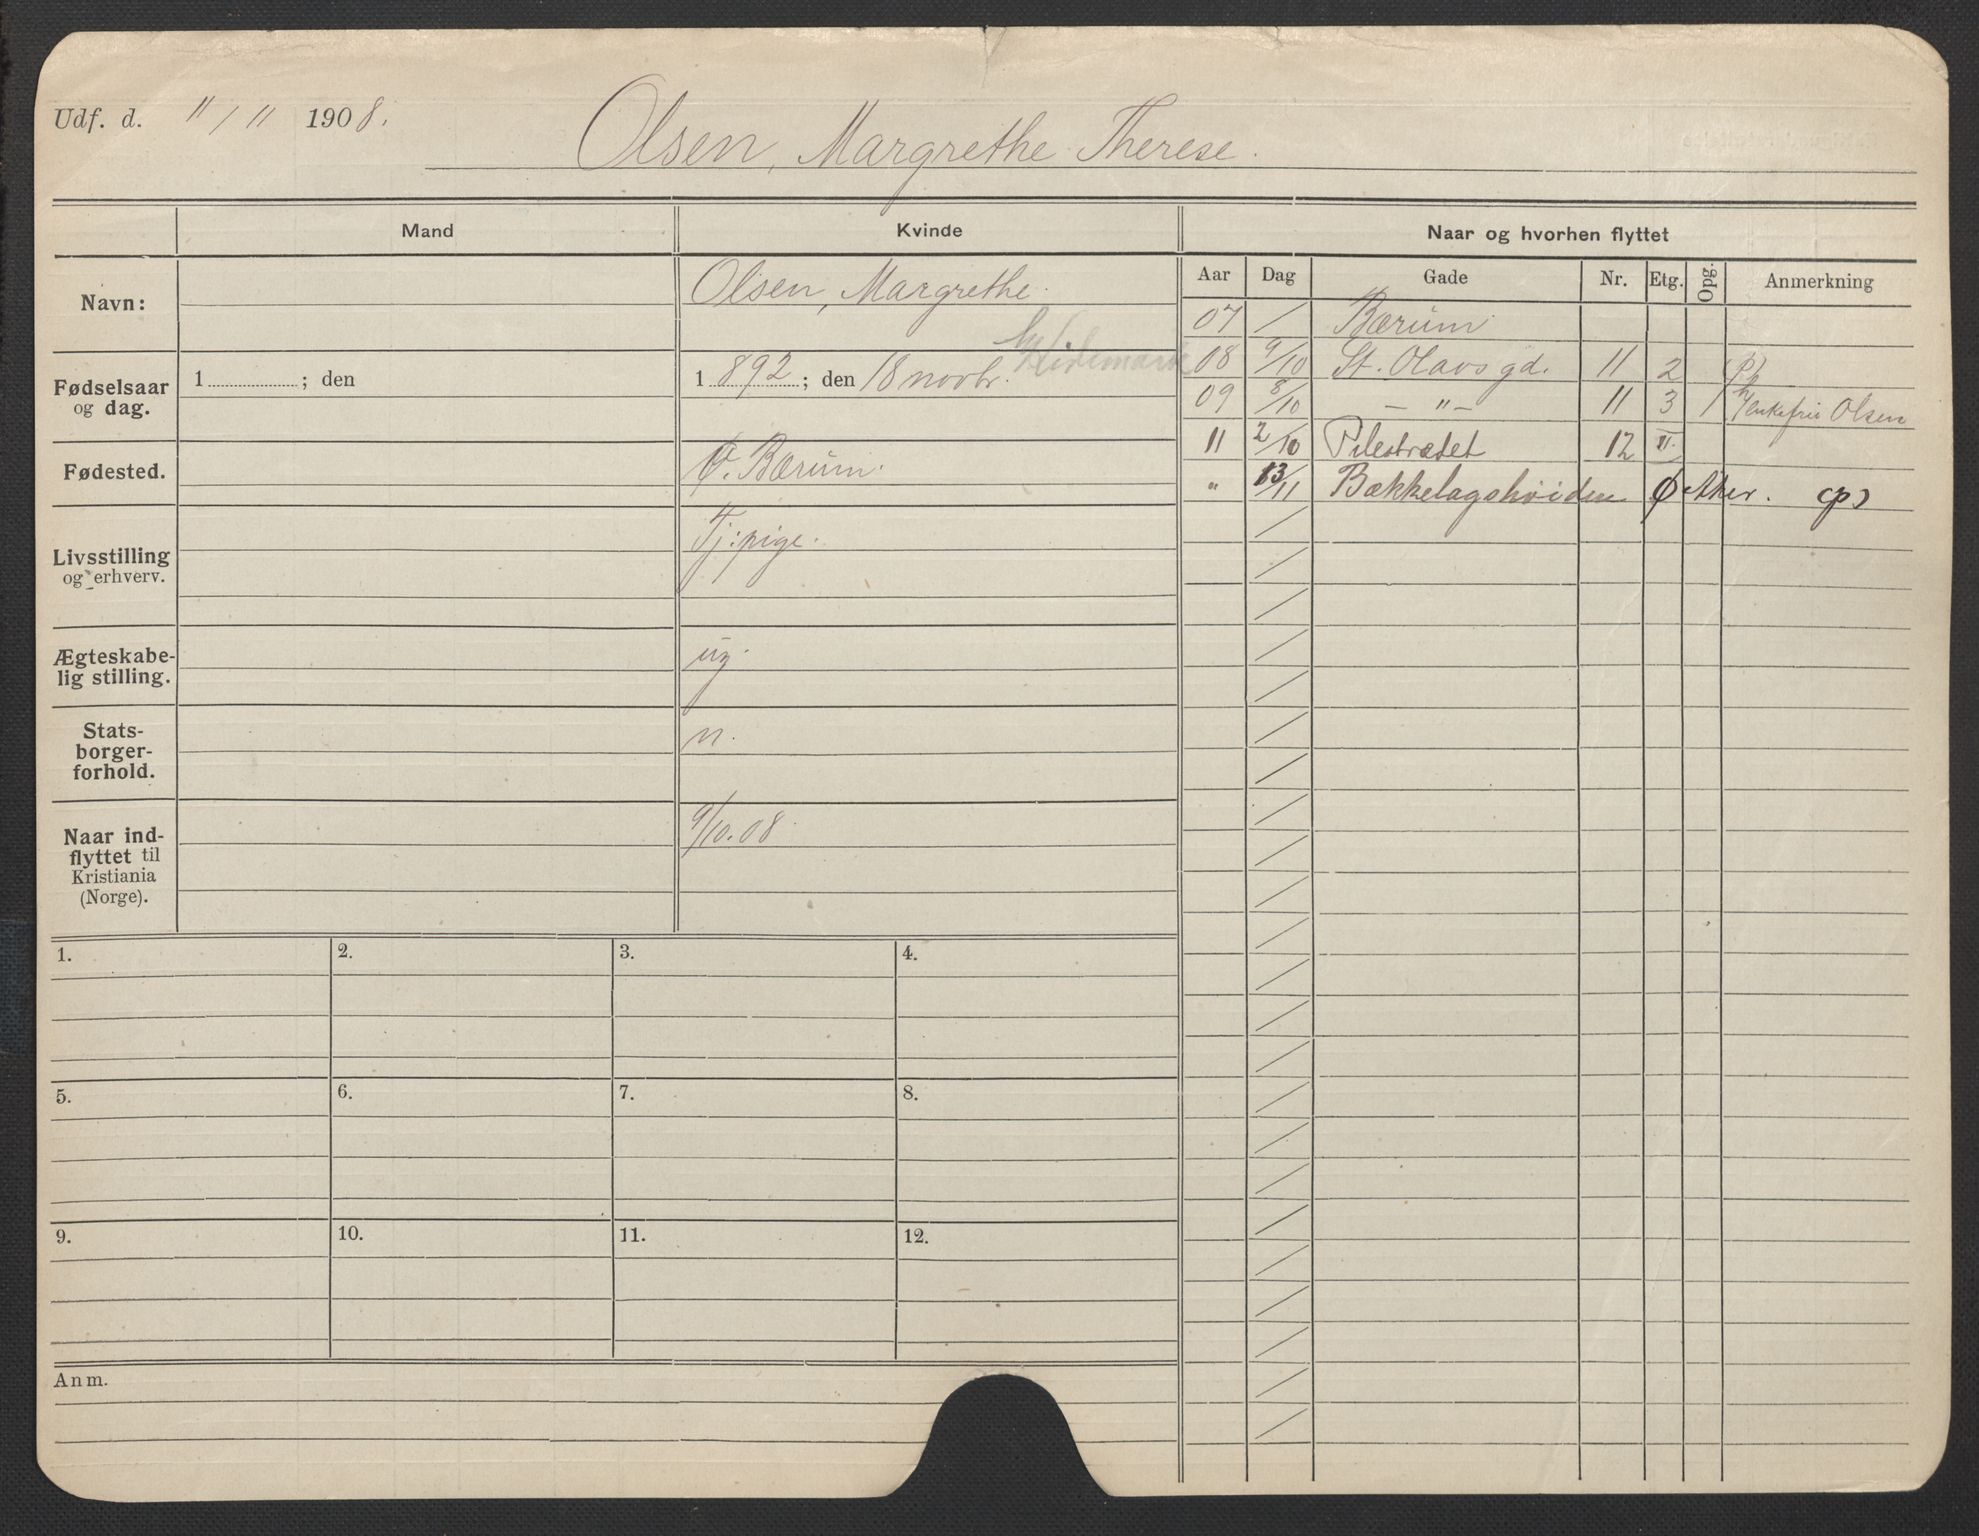 Udf. d. 11/11 1908. Olsen, Margrethe Therese.
Mand Kvinde Naar og hvorhen flyttet
Aar Dag Gade Nr. Etg. Opg. Anmerkning
Navn: Olsen, Margrethe.
07 / Bærum
08 9/10 St. Olavs gd. 11 2 (p)
09 8/10 — " — 11 3 1 h/enkefru Olsen
11 2/10 Pilestrædet 12 II.
" 13/11 Bækkelagshøiden Ø Aker. (p)
Fødselsaar og dag. 1 ; den 1892 ; den 18 novbr.
Fødested. V. Bærum.
Livsstilling og erhverv. Tj: pige.
Ægteskabe-
lig stilling. ug.
Stats-
borger-
forhold. n.
Naar ind-
flyttet til
Kristiania
(Norge). 9/10.08
1. 2. 3. 4.
5. 6. 7. 8.
9. 10. 11. 12.
Anm.